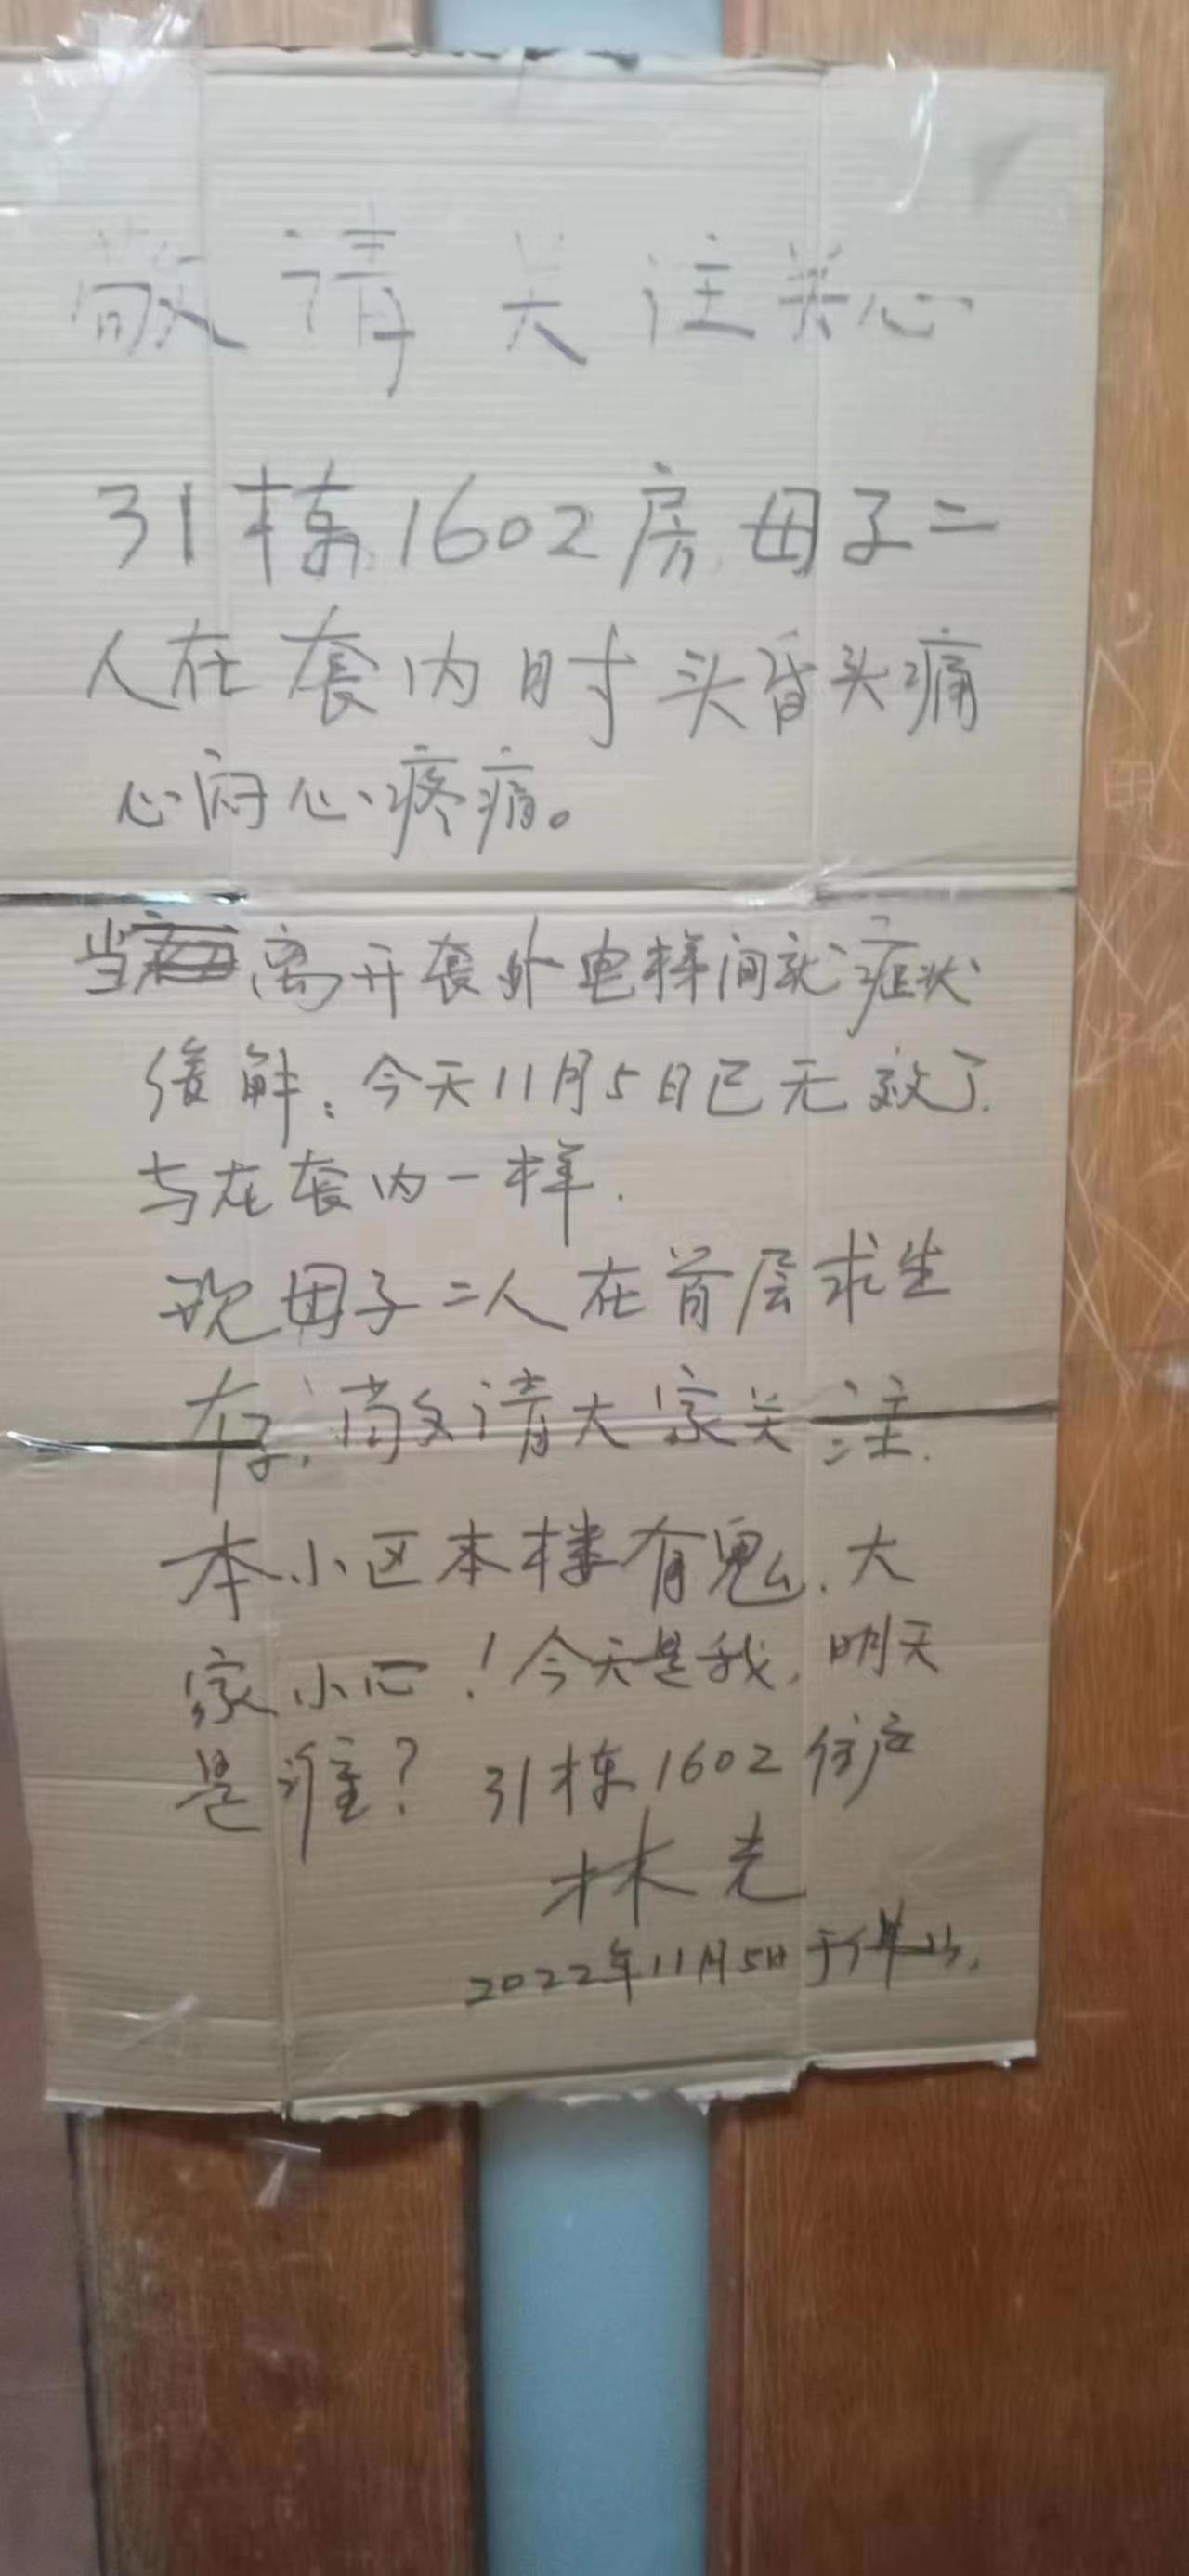 敬请关注关心
31栋1602房母子二
人在套内时头昏头痛
心闷心疼痛。
当离开套外电梯间就症状
缓解；今天11月5日已无效了.
与在套内一样.
现母子二人在首层求生
存；敬请大家关注.
本小区本楼有鬼，大
家小心！今天是我，明天
是谁？31栋1602住户
林光
2022年11月5日于佛山.